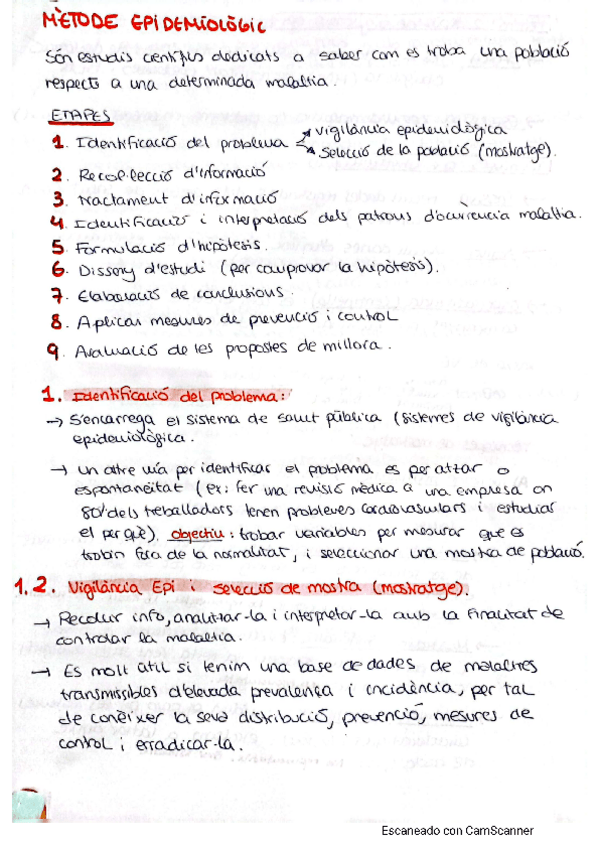 MÈTODE EPIDEMIOLÒGIC
Són estudis científics dedicats a saber com es troba una població
respecte a una determinada malaltia.
ETAPES
1. Identificació del problema → vigilància epidemiològica
→ Selecció de la població (mostratge).
2. Recol·lecció d'informació
3. Tractament d'informació
4. Identificació i interpretació dels patrons d'ocurrencia malaltia.
5. Formulació d'hipòtesis.
6. Disseny d'estudi (per comprovar la hipòtesis).
7. Elaboració de conclusions.
8. Aplicar mesures de prevenció i control
9. Avaluació de les propostes de millora.
1. Identificació del problema:
→ S'encarrega el sistema de salut pública (sistemes de vigilància
epidemiològica.
→ Un altre via per identificar el problema es per atzar o
espontaneitat (ex: fer una revisió mèdica a una empresa on
80% dels treballadors tenen problemes cardiovasculars i estudiar
el per què). objectiu: trobar variables per mesurar que es
trobin fora de la normalitat, i seleccionar una mostra de població.
1.2. Vigilància Epi i selecció de mostra (mostratge).
→ Recollir info, analitzar-la i interpretar-la amb la finalitat de
controlar la malaltia.
→ Es molt útil si tenim una base de dades de malalties
transmissibles d'elevada prevalença i incidència, per tal
de conèixer la seva distribució, prevenció, mesures de
control i erradicar-la.
Escaneado con CamScanner